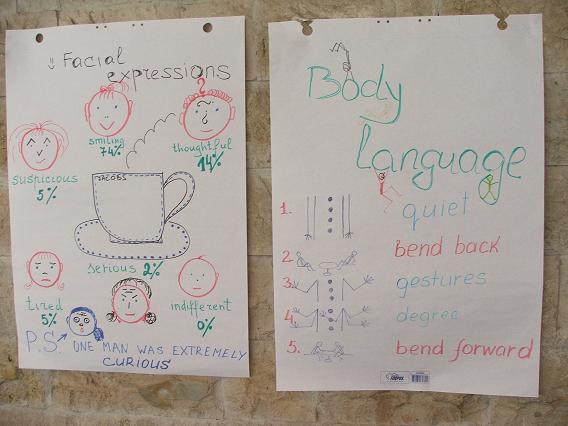 Facial
expressions
?
smiling
74%
thoughtful
14%
suspicious
5%
JACOBS
serious 2%
tired
5%
indifferent
0%
P.S. ONE MAN WAS EXTREMELY
CURIOUS
Body
Language
1. quiet
2. bend back
3. gestures
4. degree
5. bend forward